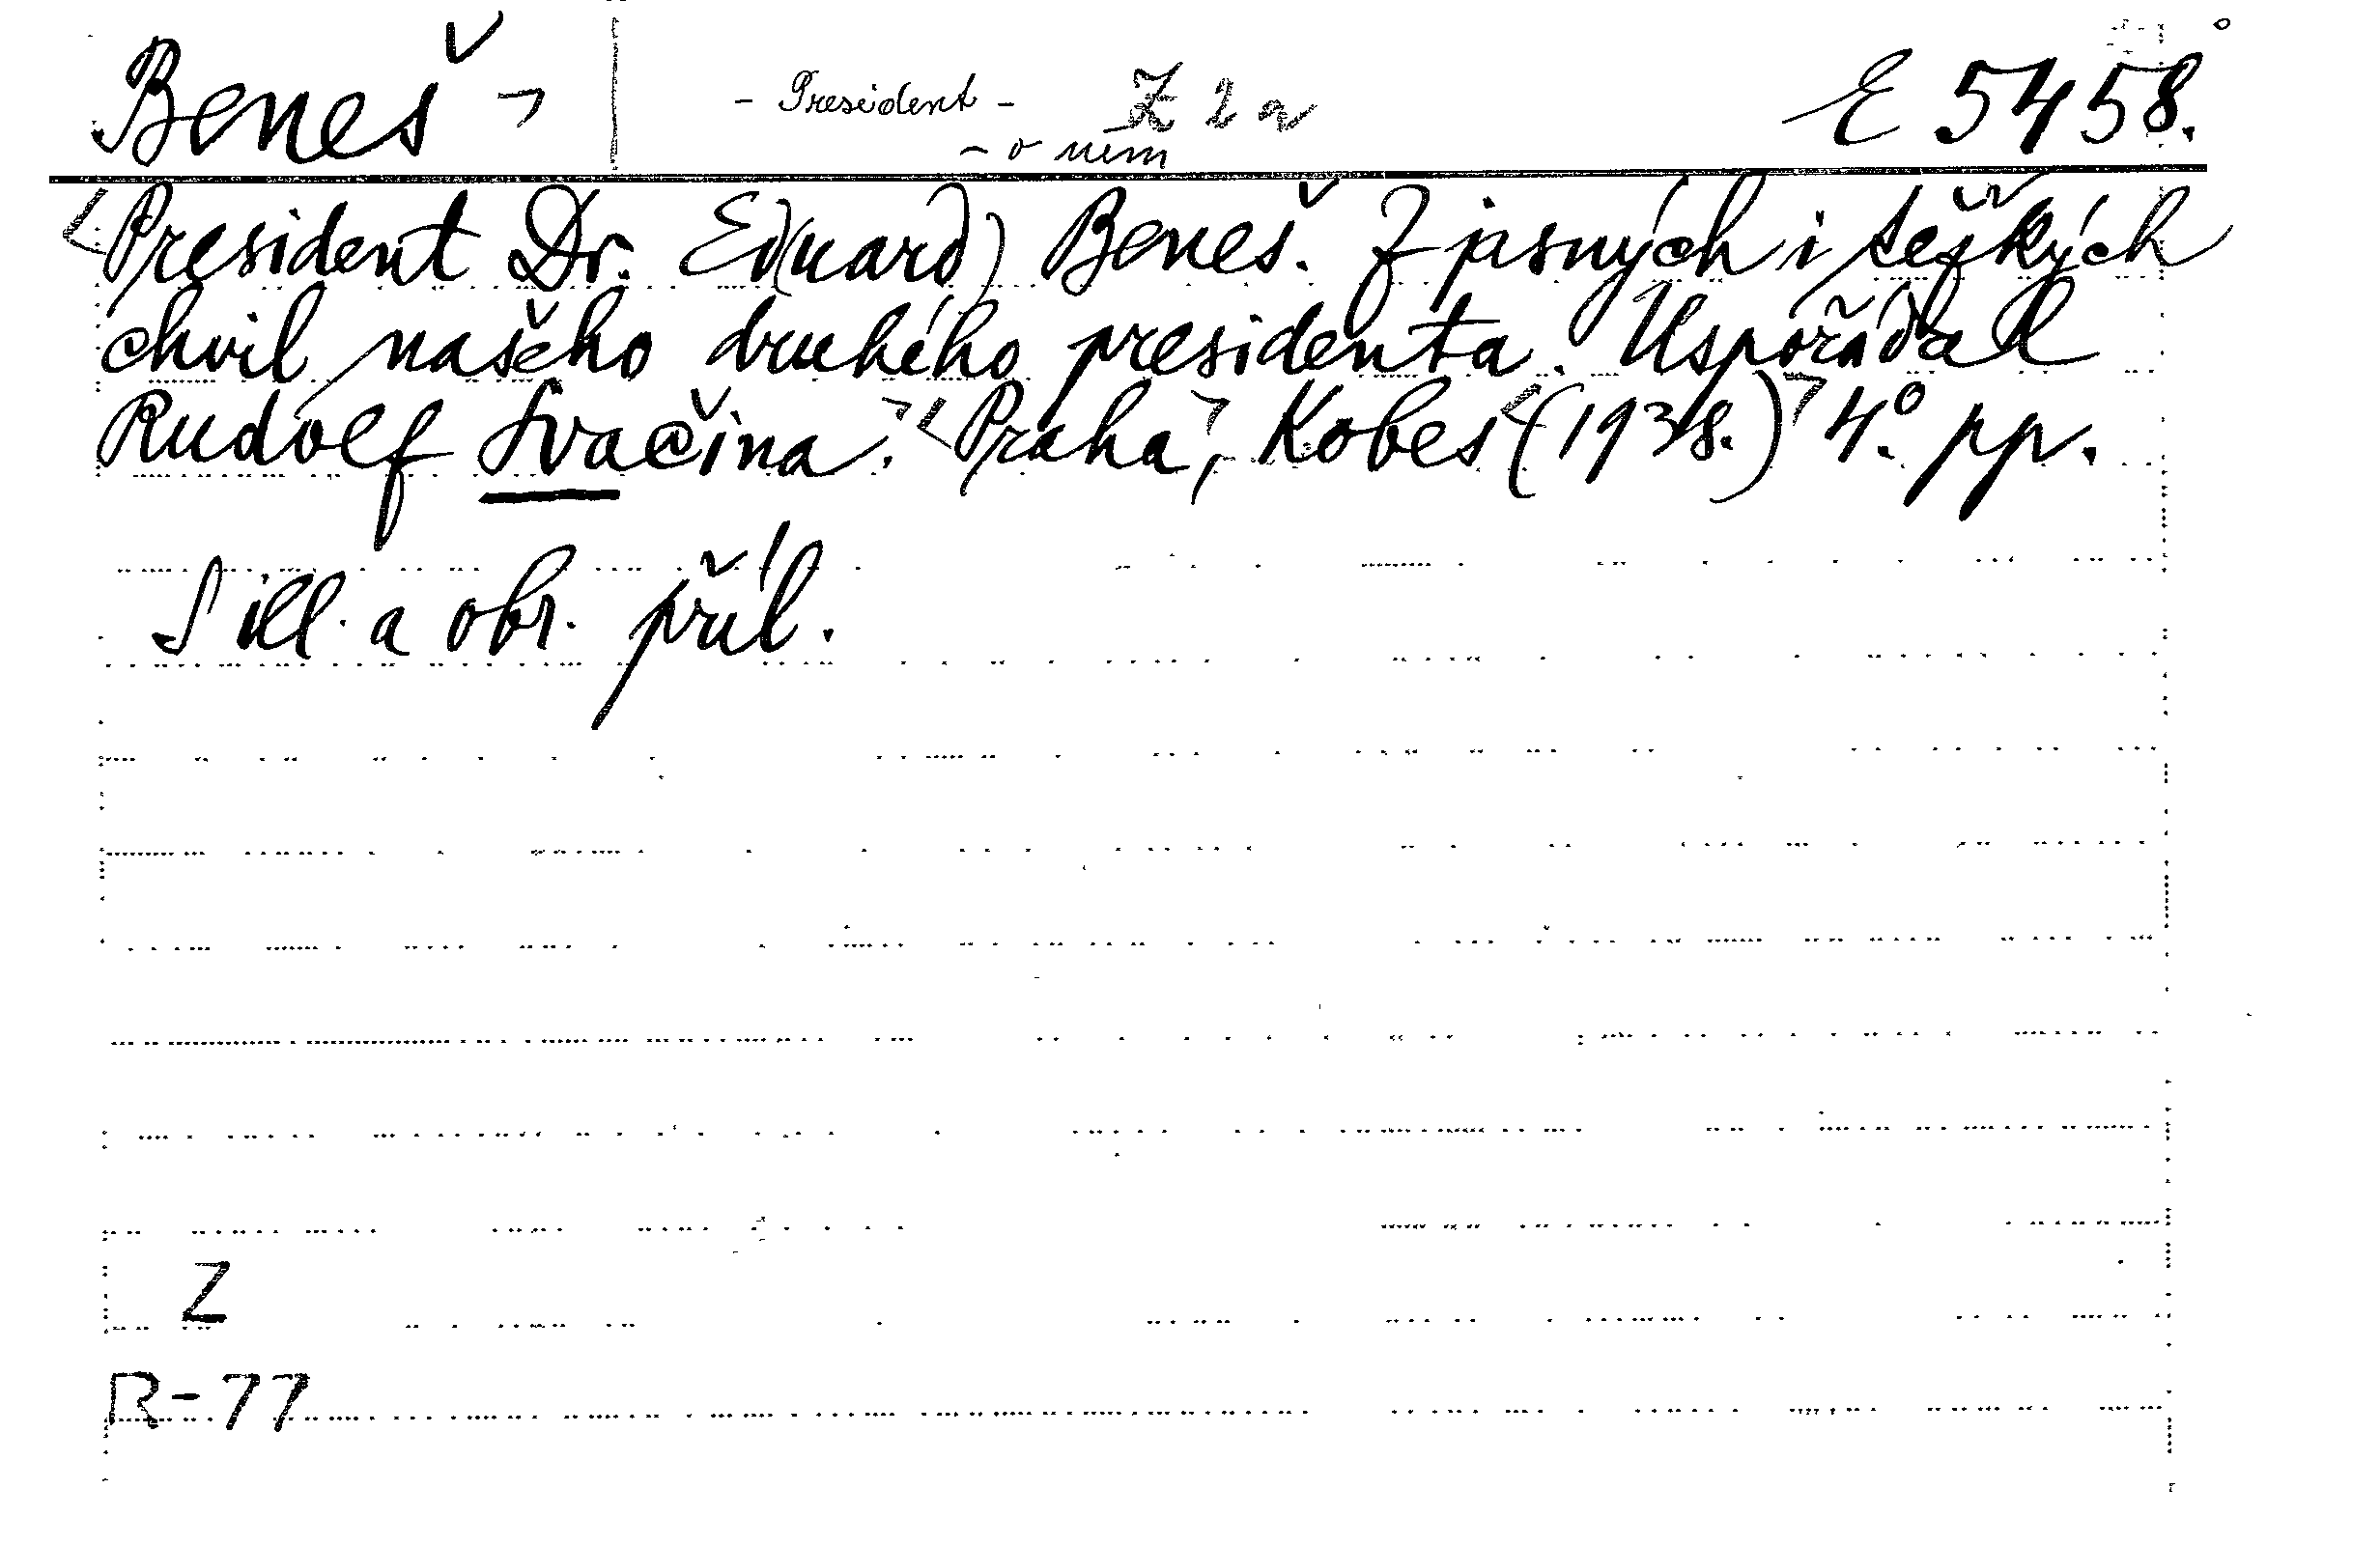 Beneš ¬ - President - Z 2 a E 5458.
- o něm
<President Dr. Ed(uard) Beneš. Z jasných i těžkých
chvil našeho druhého presidenta. Uspořádal
Rudolf Svačina.> <Praha>, Kobes <(1938.)> 4°. pp.
S ill. a obr. příl.
Z
R-77